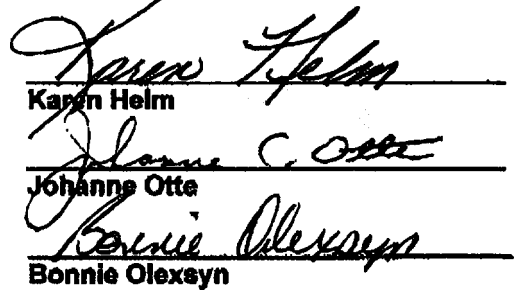 Karen Helm
Karen Helm
Johanne C. Otte
Johanne Otte
Bonnie Olexsyn
Bonnie Olexsyn